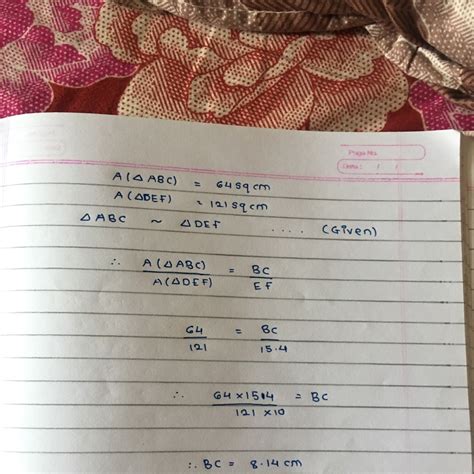 Page No.
Date: / /
A(△ABC) = 64 sq cm
A(△DEF) = 121 sq cm
△ABC ~ △DEF .... (Given)
∴ A(△ABC)/A(△DEF) = BC/EF
64/121 = BC/15.4
∴ 64×1504/121×10 = BC
∴ BC = 8.14 cm